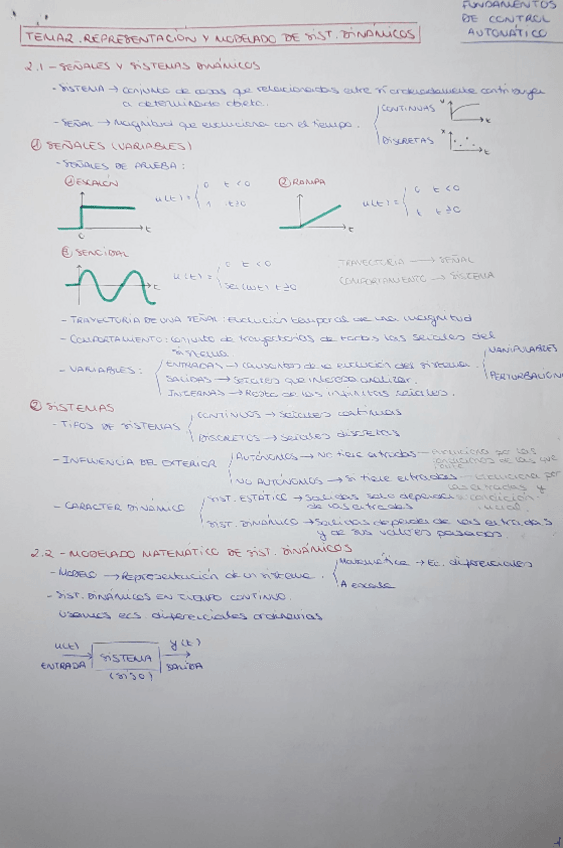 FUNDAMENTOS
DE CONTROL
AUTOMÁTICO
TEMA 2. REPRESENTACIÓN Y MODELADO DE SIST. DINÁMICOS
2.1 - SEÑALES Y SISTEMAS DINÁMICOS
- SISTEMA → conjunto de cosas que relacionadas entre sí ordenadamente contribuyen
a determinado objeto.
- SEÑAL → Magnitud que evoluciona con el tiempo.
CONTINUAS
DISCRETAS
① SEÑALES (VARIABLES)
- SEÑALES DE PRUEBA:
① ESCALÓN
u(t) = { 0 t < 0
1 t ≥ 0
② RAMPA
u(t) = { 0 t < 0
t t ≥ 0
③ SENOIDAL
u(t) = { 0 t < 0
sen(ωt) t ≥ 0
TRAYECTORIA → SEÑAL
COMPORTAMIENTO → SISTEMA
- TRAYECTORIA DE UNA SEÑAL: Evolución temporal de una magnitud
- COMPORTAMIENTO: conjunto de trayectorias de todas las señales del
sistema
- VARIABLES:
ENTRADAS → causantes de la evolución del sistema.
MANIPULABLES
PERTURBACION
SALIDAS → Señales que interesa analizar.
INTERNAS → Resto de las infinitas señales.
② SISTEMAS
- TIPOS DE SISTEMAS
CONTINUOS → señales continuas
DISCRETOS → señales discretas
- INFLUENCIA DEL EXTERIOR
AUTÓNOMOS → No tiene entradas
NO AUTÓNOMOS → Si tiene entradas
- CARACTER DINÁMICO
SIST. ESTÁTICO → Salidas solo dependen
de las entradas
condición
inicial
SIST. DINÁMICO → Salidas depende de las entradas
y de sus valores pasados.
2.2 - MODELADO MATEMÁTICO DE SIST. DINÁMICOS
- MODELO → Representación de un sistema.
Matemática → Ec. diferenciales
A escala
- SIST. DINÁMICOS EN TIEMPO CONTINUO.
usamos ecs diferenciales ordinarias
u(t)
ENTRADA
SISTEMA
(SISO)
y(t)
SALIDA
1